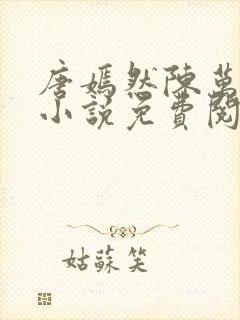 唐嫣然陳萬
小說免費閱
姑蘇笑